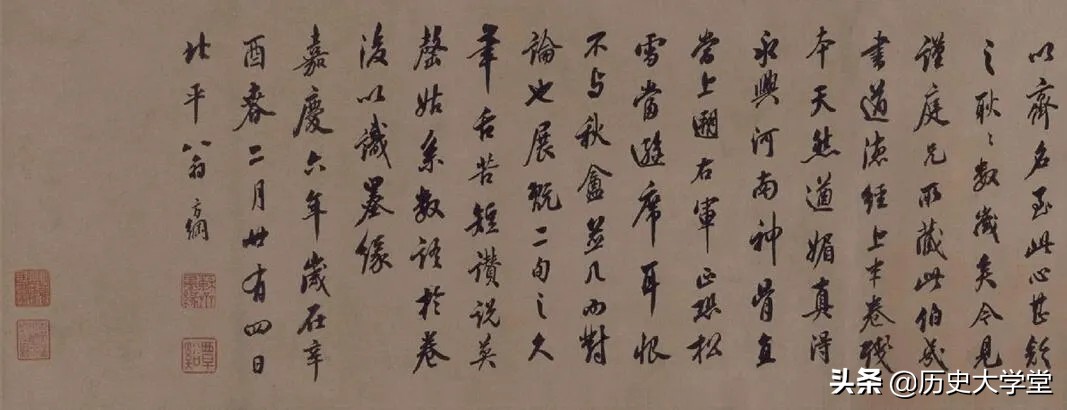 以齊名至此心甚歉
之耿〻數歲矣今見
謹庭兄所藏此伯幾
書道德經上半卷殘
本天然遒媚真得
永興河南神骨直
當上溯右軍正恐松
雪當避席耳恨
不与秋盦並几而對
論也展翫二旬之久
筆舌苦短讚說莫
罄姑系數語於卷
後以識墨緣
嘉慶六年歲在辛
酉春二月廿有四日
北平翁方綱
覃谿
头条 @历史大学堂